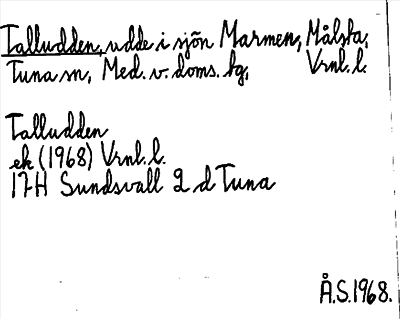 Talludden, udde i sjön Marmen, Målsta,
Tuna sn, Med. v. doms. hg, Vrnl. l.
Talludden
ek (1968) Vrnl. l.
17H Sundsvall 2 d Tuna
Å.S. 1968.